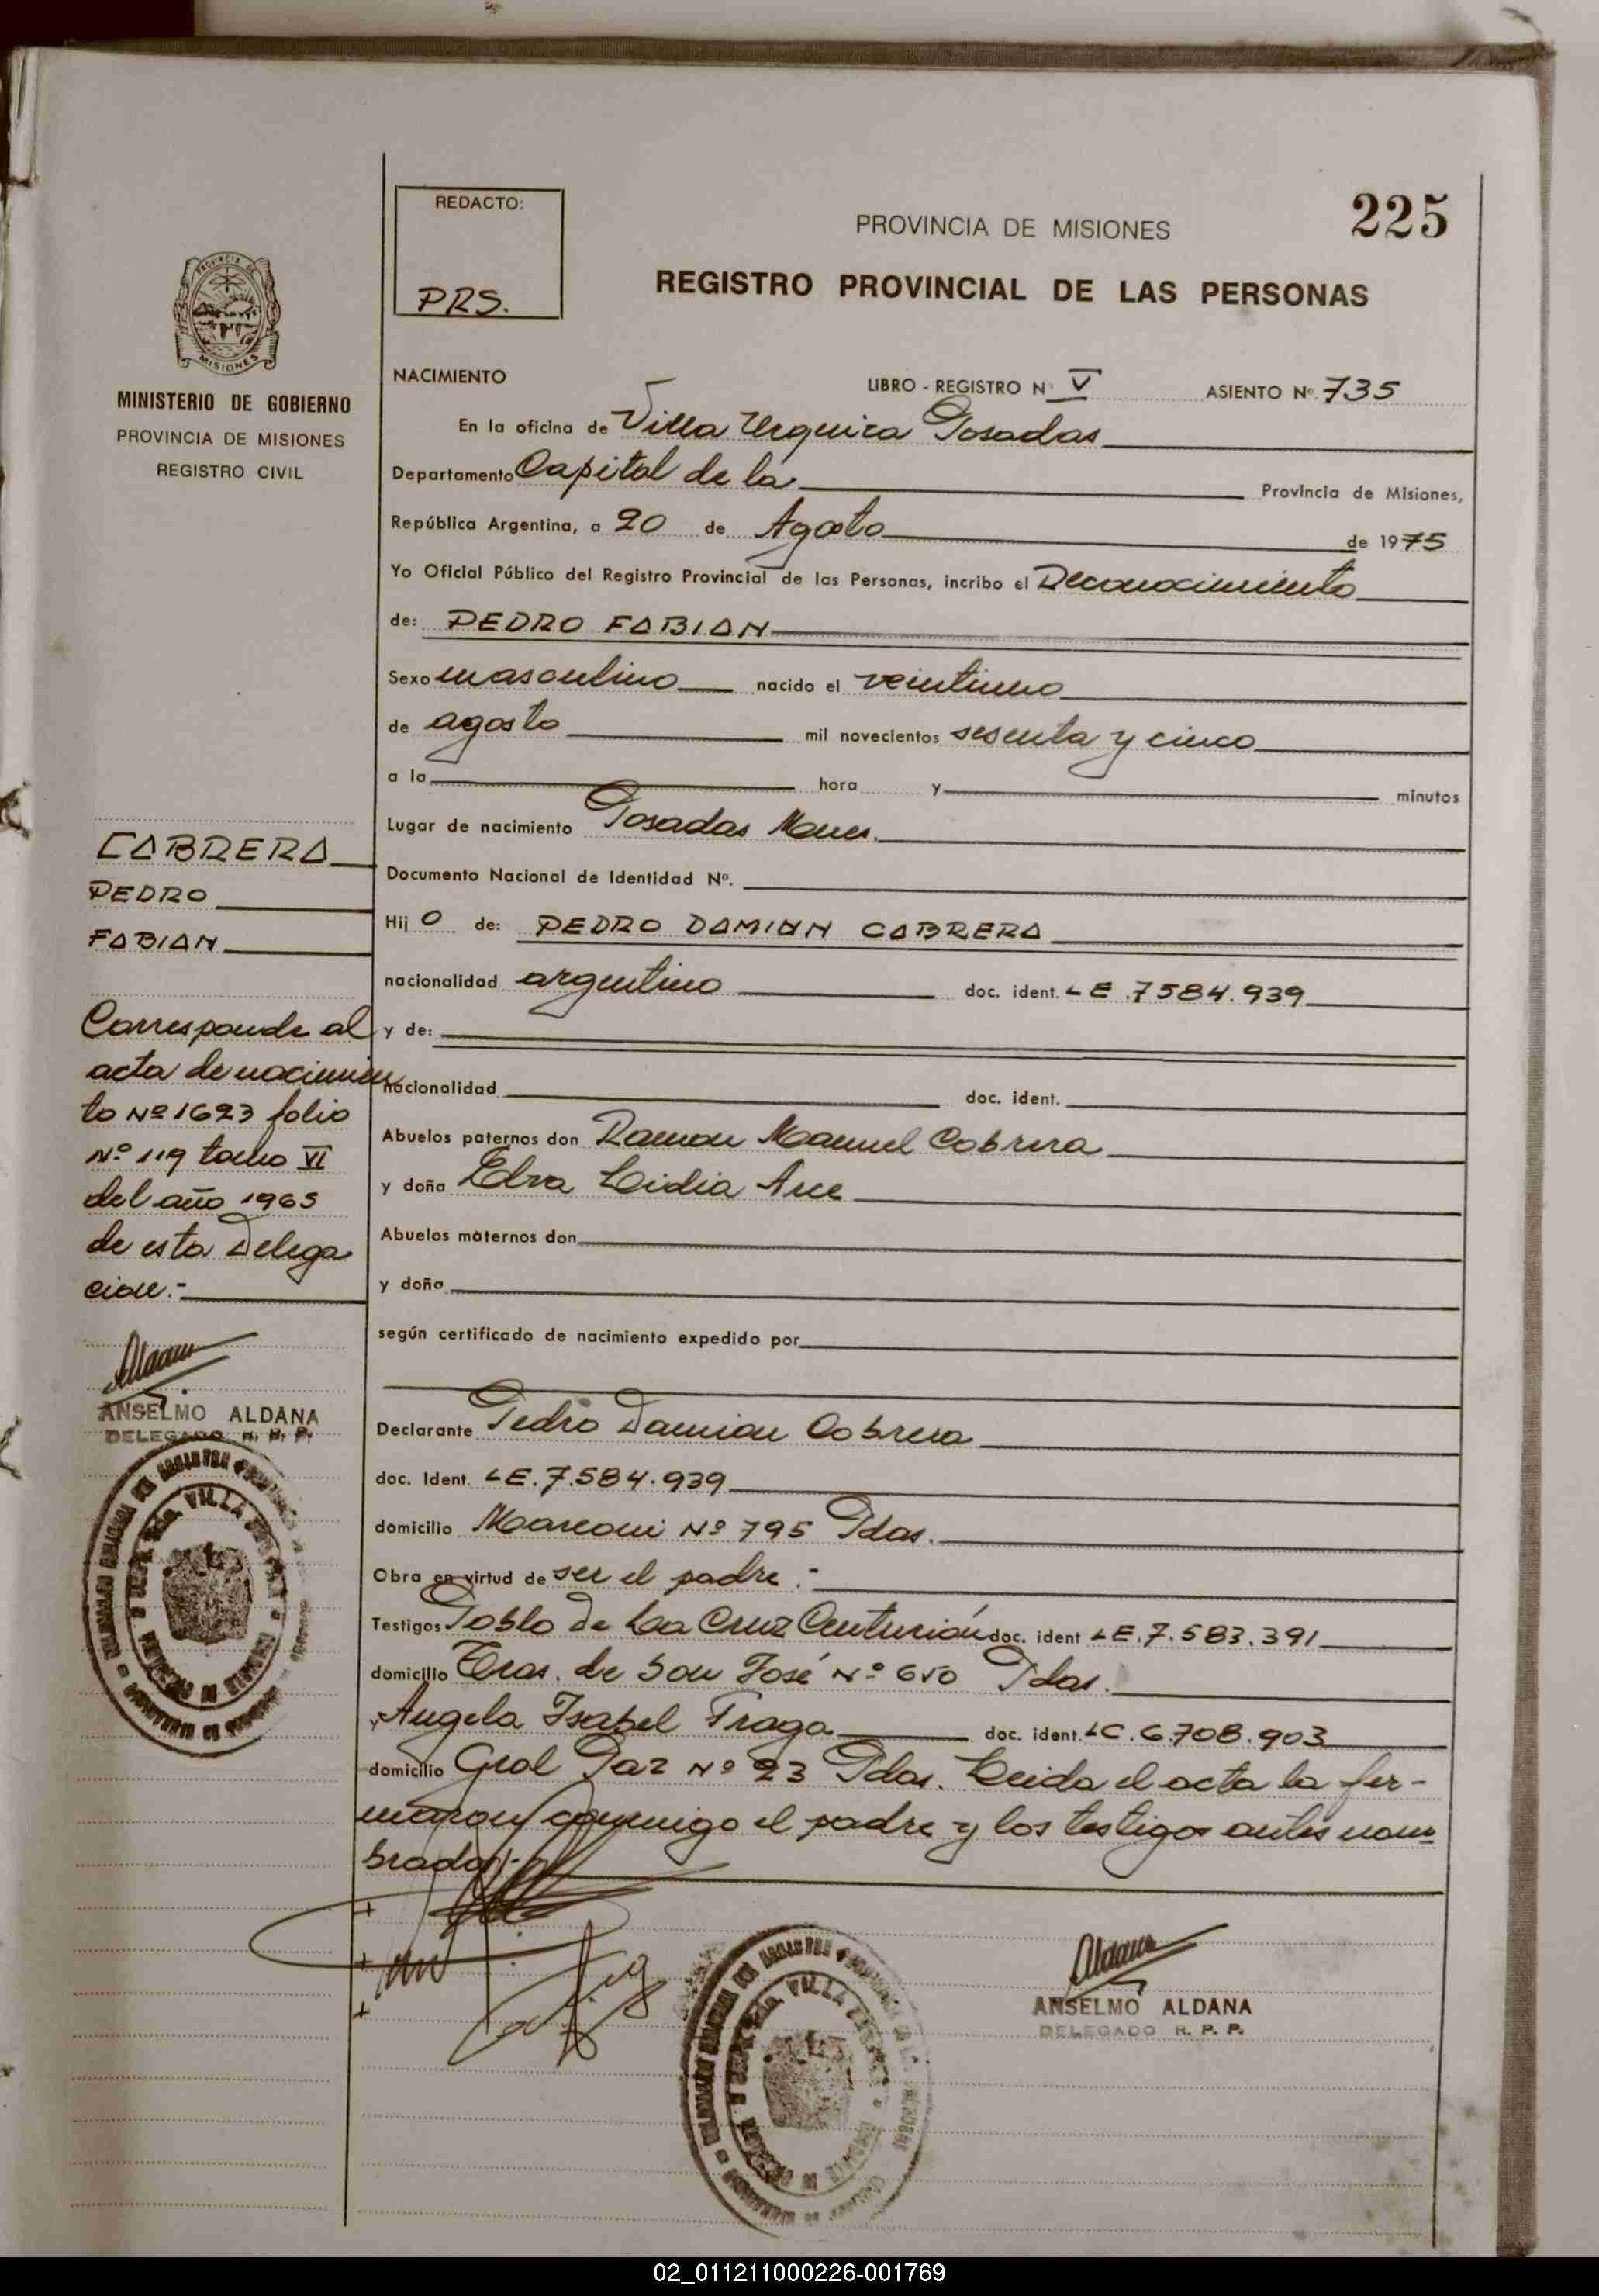 225
REDACTO:
PRS.
PROVINCIA DE MISIONES
REGISTRO PROVINCIAL DE LAS PERSONAS
MINISTERIO DE GOBIERNO
PROVINCIA DE MISIONES
REGISTRO CIVIL
NACIMIENTO LIBRO - REGISTRO Nº V ASIENTO Nº 735
En la oficina de Villa Urquiza Posadas
Departamento Capital de la Provincia de Misiones,
República Argentina, a 20 de Agosto de 1975
Yo Oficial Público del Registro Provincial de las Personas, incribo el Reconocimiento
de: PEDRO FABIAN
Sexo masculino nacido el veintiuno
de agosto mil novecientos sesenta y cinco
a la hora y minutos
Lugar de nacimiento Posadas Mnes.
Documento Nacional de Identidad Nº.
Hij o de: PEDRO DAMIAN CABRERA
nacionalidad argentino doc. ident. LE 7584.939
y de:
nacionalidad doc. ident.
Abuelos paternos don Ramon Manuel Cabrera
y doña Elva Lidia Arce
Abuelos maternos don
y doña
según certificado de nacimiento expedido por
Declarante Pedro Damian Cabrera
doc. Ident. LE.7.584.939
domicilio Marconi Nº 795 Pdas.
Obra en virtud de ser el padre.-
Testigos Pablo de La Cruz Centurión doc. ident LE.7.583.391
domicilio Tras. de San José Nº 650 Pdas.
y Angela Isabel Fraga doc. ident. LC.6.708.903
domicilio Gral Paz Nº 23 Pdas. Leida el acta la fir-
maron conmigo el padre y los testigos antes nom
brados.-
CABRERA
PEDRO
FABIAN
Corresponde al
acta de nacimien
to Nº 1623 folio
Nº 119 tomo VI
del año 1965
de esta Delega
cion.-
Aldana
ANSELMO ALDANA
DELEGADO R. P. P.
VILLA
Aldana
ANSELMO ALDANA
DELEGADO R. P. P.
VILLA
02_011211000226-001769